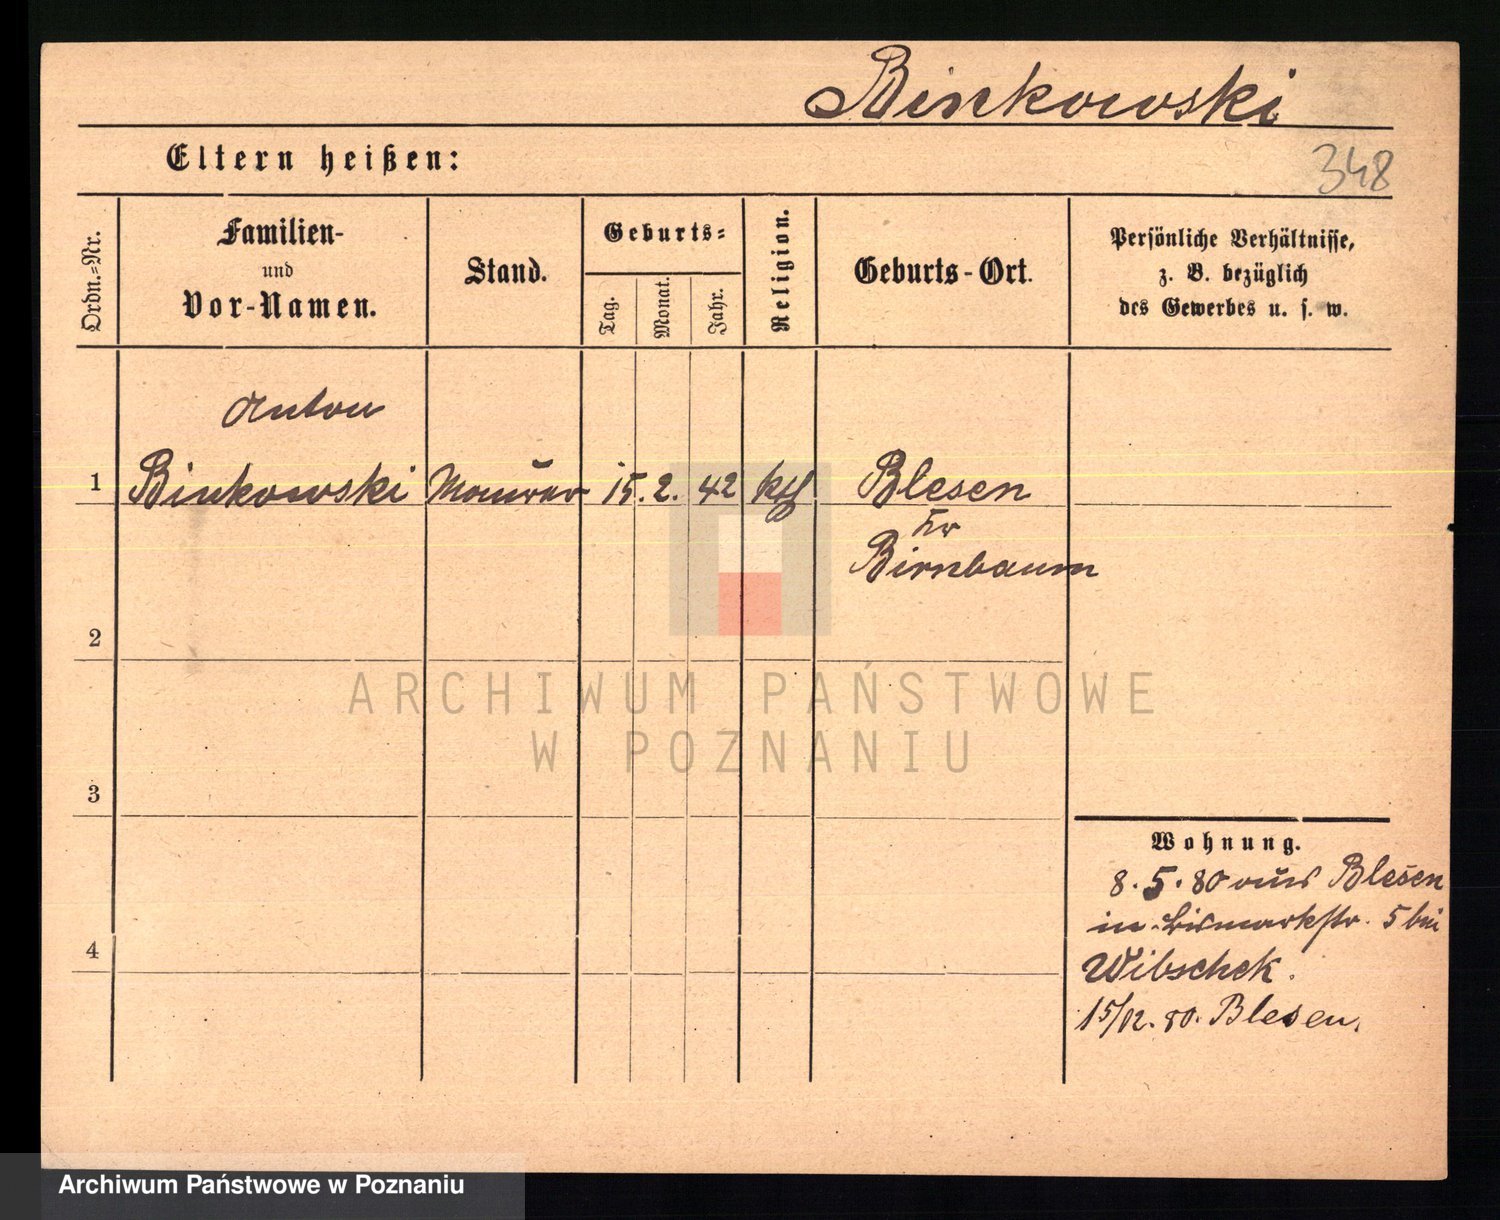 Binkowski
Eltern heißen:
348
Ordn.=Nr.
Familien-
und
Vor-Namen.
Stand.
Geburts=
Tag.
Monat.
Jahr.
Religion.
Geburts-Ort.
Persönliche Verhältnisse,
z. B. bezüglich
des Gewerbes u. s. w.
Anton
1 Binkowski Maurer 15. 2. 42 kth Blesen
Kr
Birnbaum
2
ARCHIWUM PAŃSTWOWE
W POZNANIU
3
Wohnung.
8. 5. 80 aus Blesen
in Bismarckstr. 5 bei
4
Wibschek.
15/12. 80. Blesen.
Archiwum Państwowe w Poznaniu